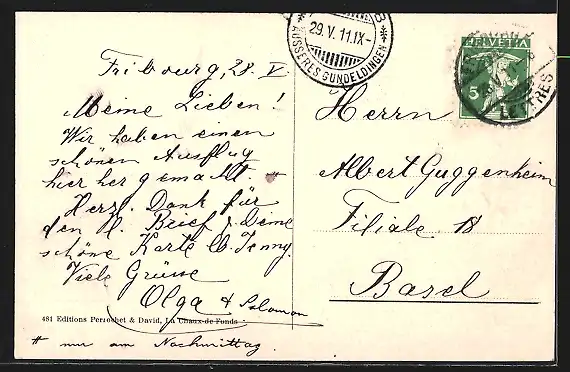 Fribourg, 28. V.
Meine Lieben!
Wir haben einen
schönen Ausflug
hier her gemacht. #
Herzl. Dank für
den l. Brief & Deine
schöne Karte lb. Jenny.
Viele Grüsse
Olga & Salomon
481 Editions Perrochet & David, La Chaux-de-Fonds
# nur am Nachmittag.
29. V. 11. IX-
ÄUSSERES GUNDELDINGEN
HELVETIA
5
LETTRES
Herrn
Albert Guggenheim
Filiale 18
Basel